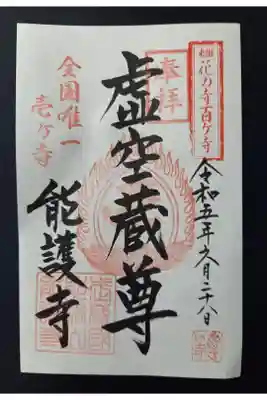 花の寺百ケ寺
令和五年六月二十八日
奉拝
虚空蔵尊
全国唯一
壱ケ寺
能護寺